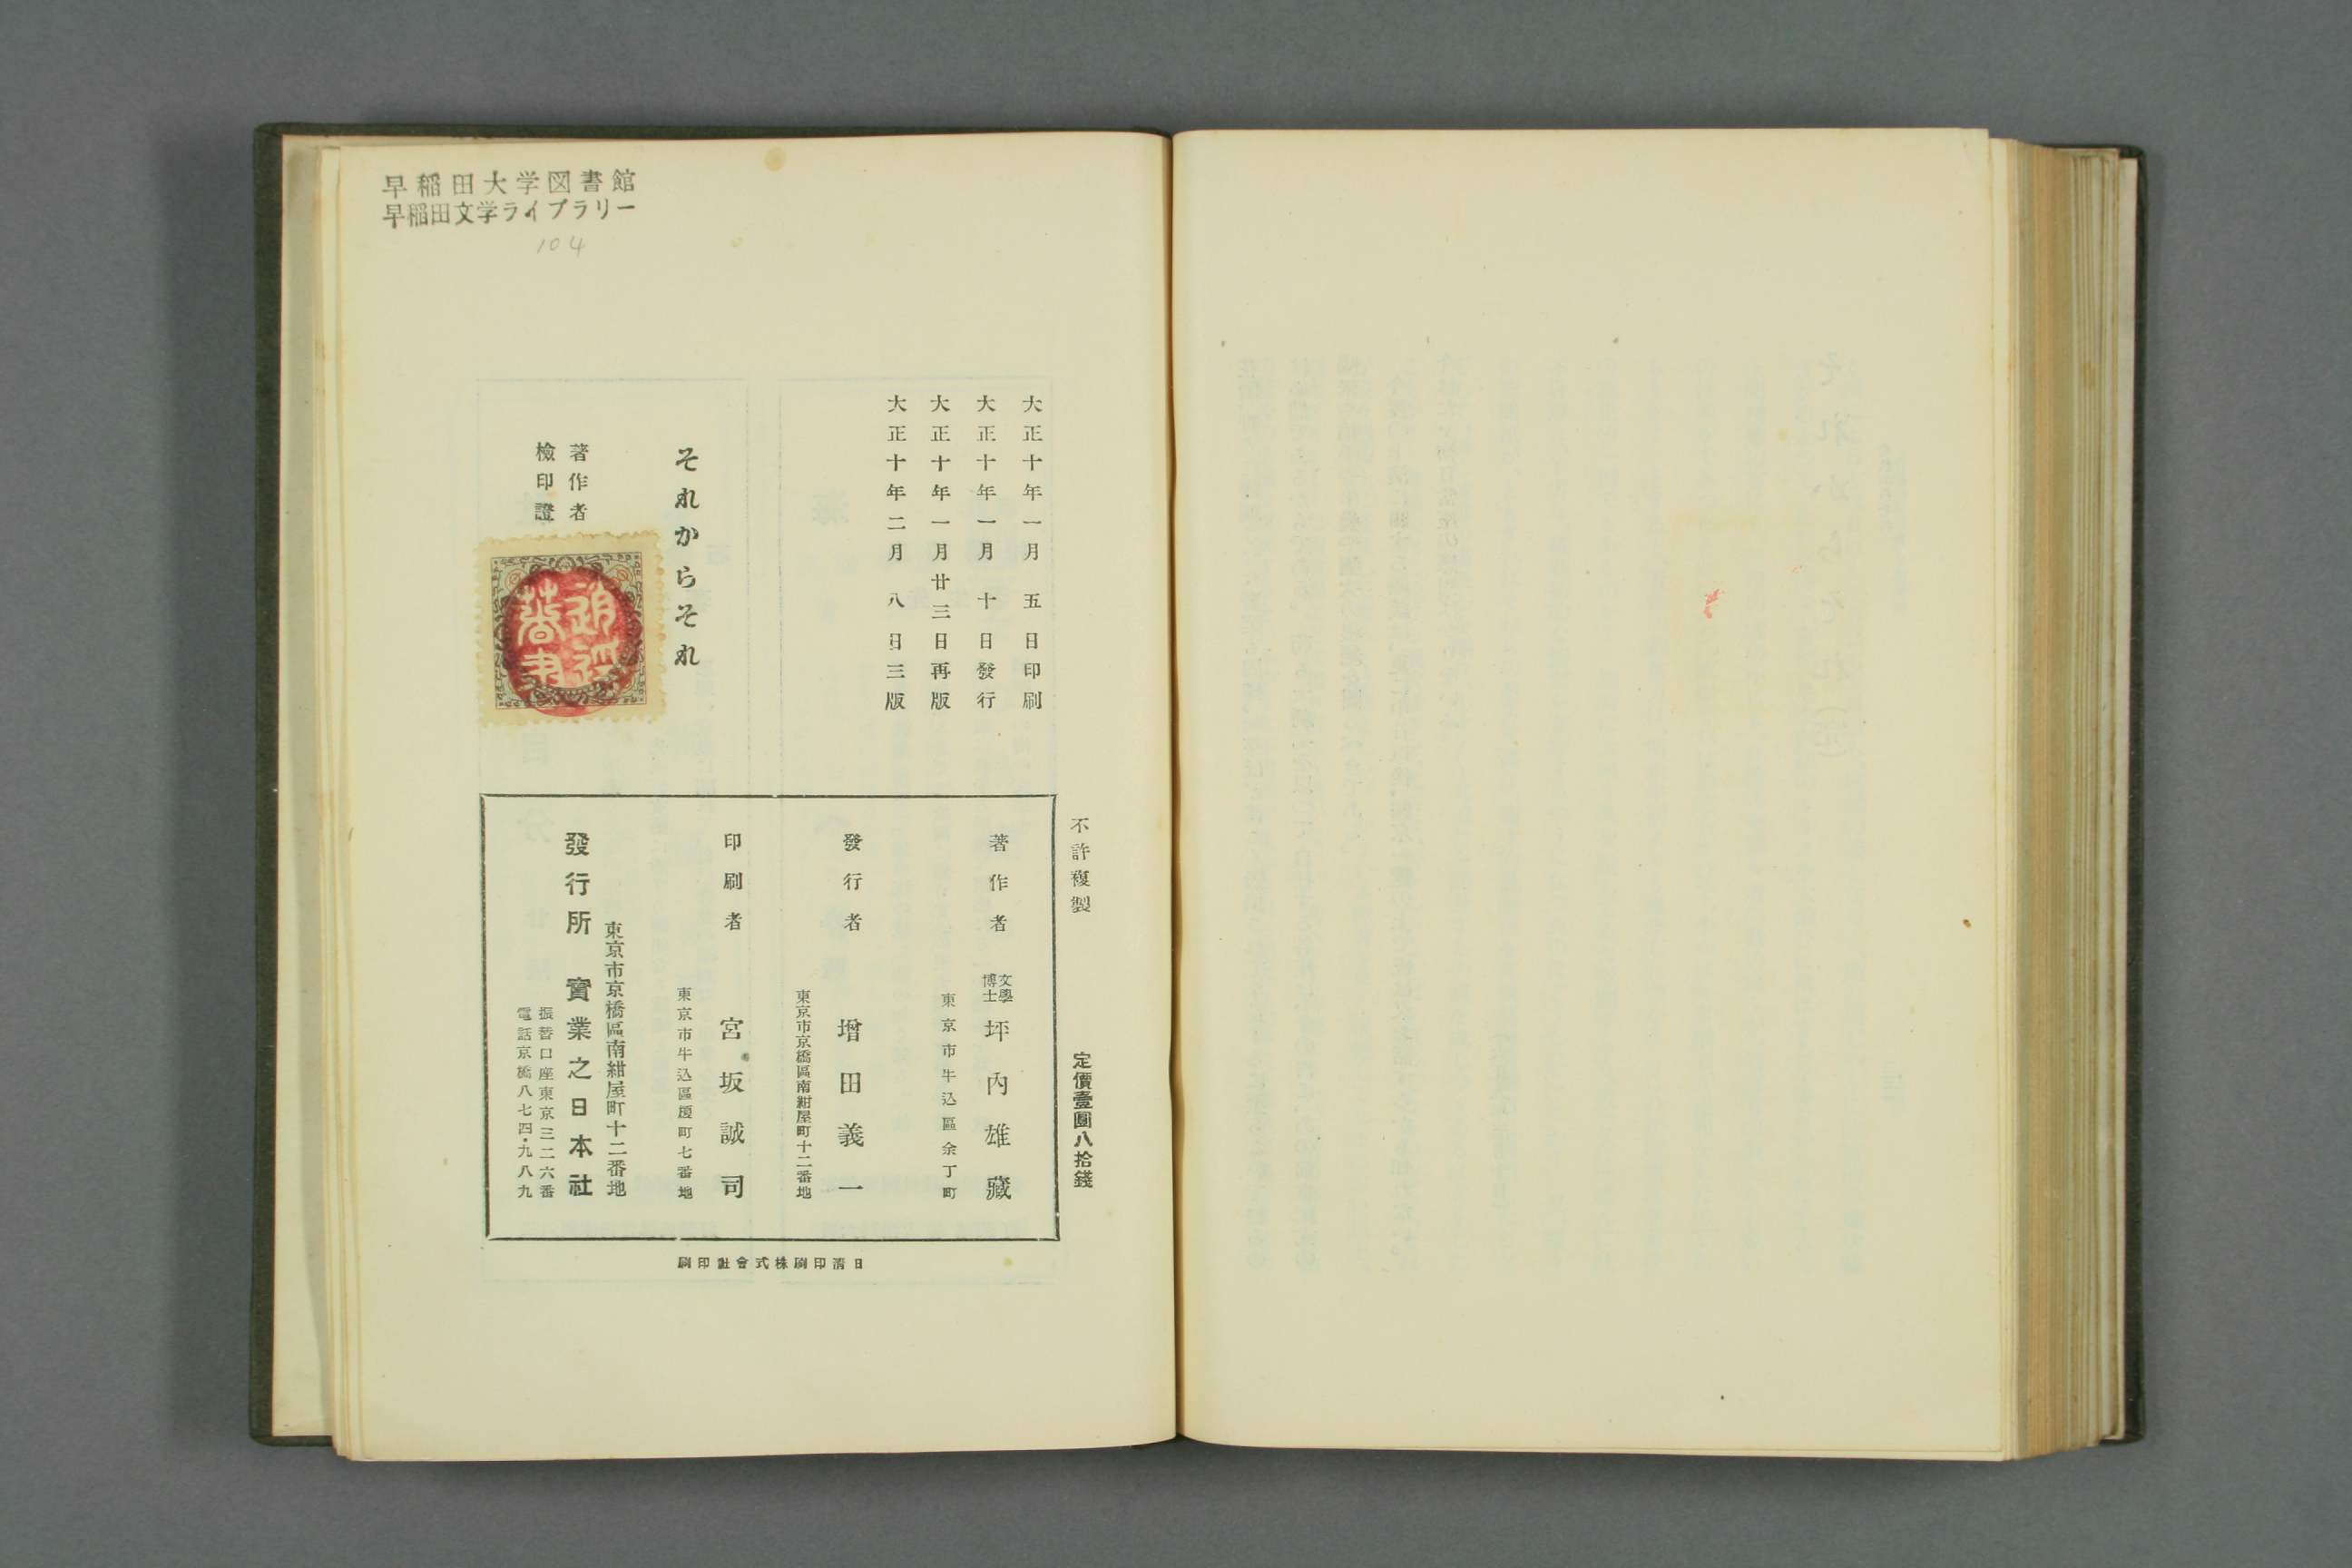 早稲田大学図書館
早稲田文学ライブラリー
104
大正十年一月五日印刷
大正十年一月十日發行
大正十年一月廿三日再版
大正十年二月八日三版
それからそれ
著作者
檢印證
不許複製
定價壹圓八拾錢
著作者 文學博士 坪內雄藏
東京市牛込區余丁町
發行者 增田義一
東京市京橋區南紺屋町十二番地
印刷者 宮坂誠司
東京市牛込區榎町七番地
東京市京橋區南紺屋町十二番地
發行所 實業之日本社
振替口座東京三二六番
電話京橋八七四・九八九
日清印刷株式會社印刷